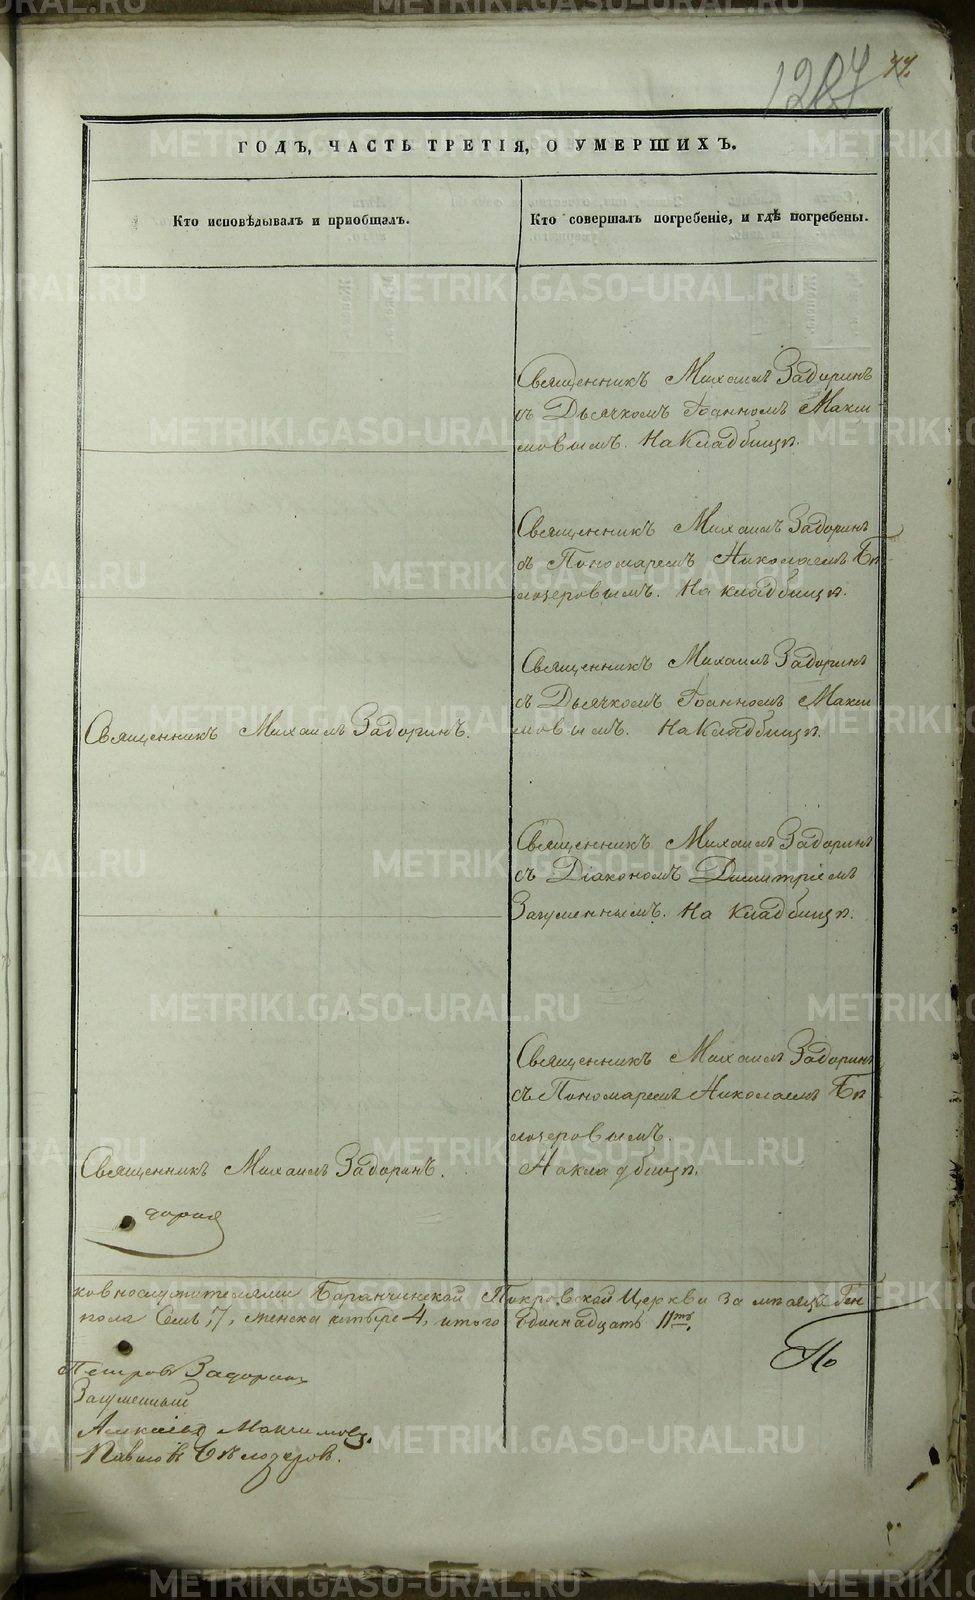 77.
ГОДЪ, ЧАСТЬ ТРЕТІЯ, О УМЕРШИХЪ.
Кто исповѣдывалъ и приобщалъ.
Кто совершалъ погребеніе, и гдѣ погребены.
Священникъ Михаилъ Задоринъ
съ Дьячкомъ Іоанномъ Макси
мовымъ. На Кладбищѣ.
Священникъ Михаилъ Задоринъ
съ Пономаремъ Николаемъ Бѣ
лозеровымъ. На кладбищѣ.
Священникъ Михаилъ Задоринъ.
Священникъ Михаилъ Задоринъ
съ Дьячкомъ Іоанномъ Макси
мовымъ. На Кладбищѣ.
Священникъ Михаилъ Задоринъ
съ Діакономъ Димитріемъ
Загуменнымъ. На кладбищѣ.
Священникъ Михаилъ Задоринъ.
Священникъ Михаилъ Задоринъ
съ Пономаремъ Николаемъ Бѣ
лозеровымъ.
На кладбищѣ.
ковнослужителями Баранчинской Покровской Церкви за мѣсяцъ Ген
пола Семь, 7, женска четыре 4, итого Одиннадцать 11ть.
По
Петровъ Задоринъ
Загуменный
Максимовъ.
Павловъ Бѣлозеровъ.
METRIKI.GASO-URAL.RU